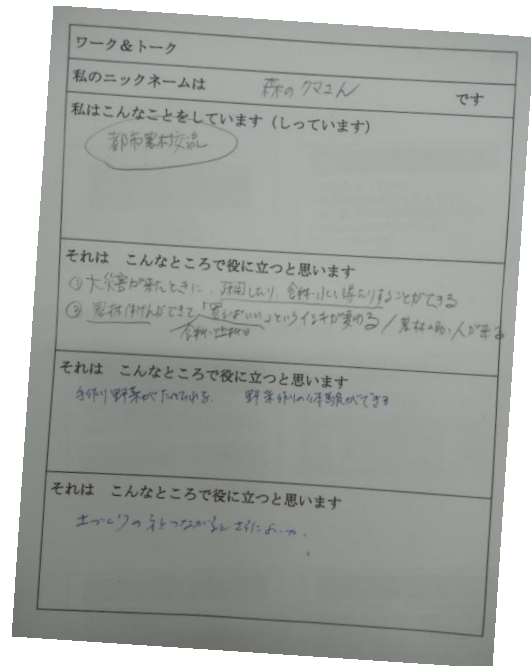 ワーク＆トーク
私のニックネームは 森のクマさん です
私はこんなことをしています（しっています）
都市農村交流
それは こんなところで役に立つと思います
①大災害が来たときに、疎開したり、食料・水を得たりすることができる
②農林体けんができて「買えばいい」という が変わる／農村の助 人が来る
食料
それは こんなところで役に立つと思います
手作り野菜が 野菜作りの体験ができる
それは こんなところで役に立つと思います
土づくりの とつながるとさらによい